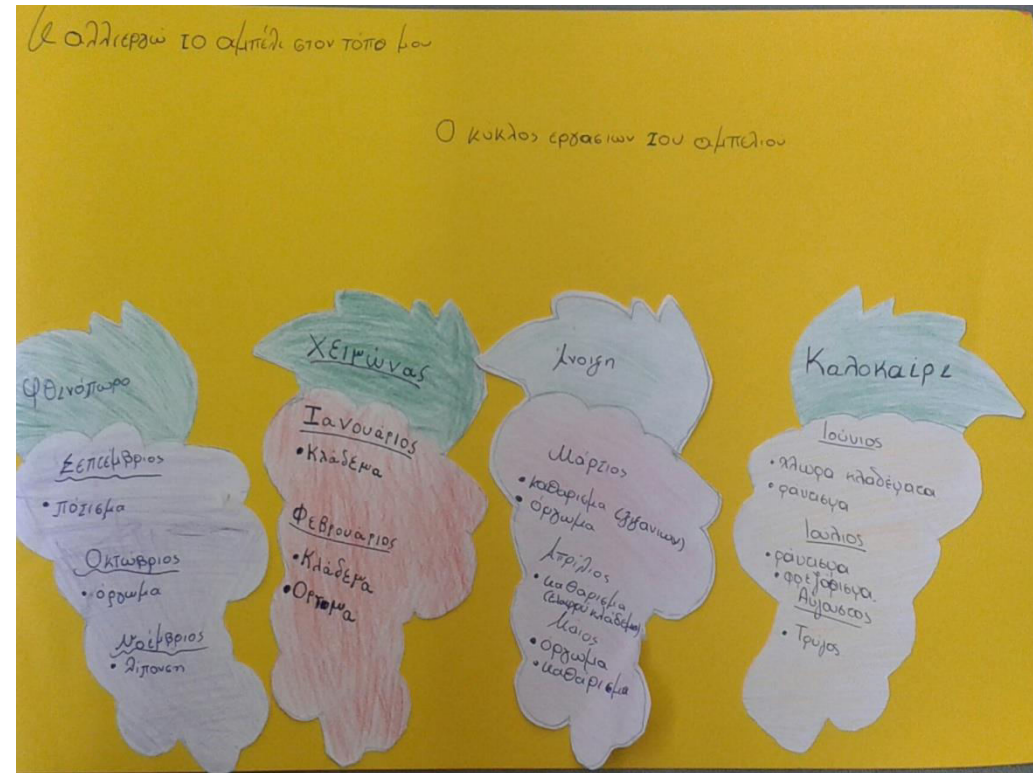 Καλλιεργώ το αμπέλι στον τόπο μου
Ο κυκλος εργασιων του αμπελιου
Φθινόπωρο
Σεπτέμβριος
• πότισμα
Οκτώβριος
• όργωμα
Νοέμβριος
• λίπανση
Χειμώνας
Ιανουάριος
• Κλάδεμα
Φεβρουάριος
• Κλάδεμα
• Οργωμα
Άνοιξη
Μάρτιος
• καθάρισμα (ζιζανιων)
• όργωμα
Απρίλιος
• καθάρισμα
Μάιος
• όργωμα
• καθαρισμα
Καλοκαίρι
Ιούνιος
• χλωρα κλαδέματα
• ραντισμα
Ιούλιος
• ράντισμα
Αύγουστος
• Τρύγος